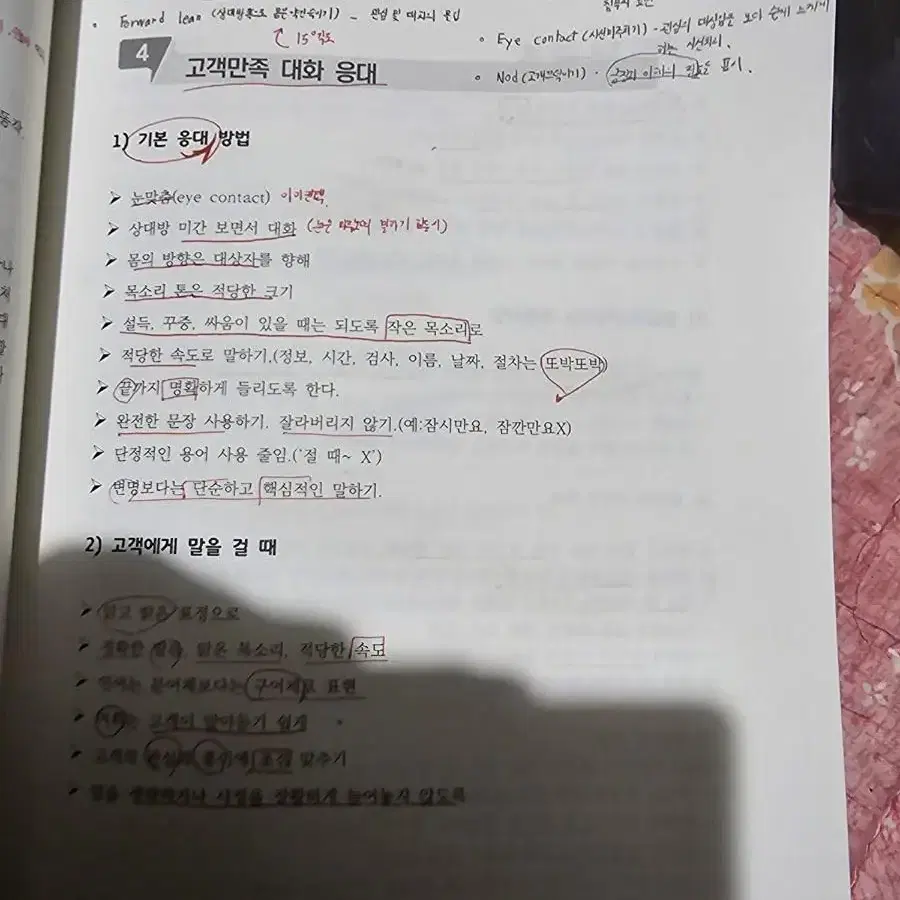 Forward lean (상대방쪽으로 몸을 약간 숙이기) -
15°각도
Eye contact (시선마주치기) -
Nod (고개끄덕이기) -
4
고객만족 대화 응대
1) 기본 응대 방법
➤ 눈맞춤(eye contact)
➤ 상대방 미간 보면서 대화
➤ 몸의 방향은 대상자를 향해
➤ 목소리 톤은 적당한 크기
➤ 설득, 꾸중, 싸움이 있을 때는 되도록 작은 목소리로
➤ 적당한 속도로 말하기.(정보, 시간, 검사, 이름, 날짜, 절차는 또박또박)
➤ 끝까지 명확하게 들리도록 한다.
➤ 완전한 문장 사용하기. 잘라버리지 않기.(예:잠시만요, 잠깐만요X)
➤ 단정적인 용어 사용 줄임.('절 때~ X')
➤ 변명보다는 단순하고 핵심적인 말하기.
2) 고객에게 말을 걸 때
➤ 밝고 맑은 표정으로
➤ 정확한 발음, 맑은 목소리, 적당한 속도
➤ 문어체보다는 구어체로 표현
➤ 고객이 알아듣기 쉽게
➤ 고객의 관심과 흥미에 초점 맞추기
➤ 말을 생략하거나 사정을 장황하게 늘어놓지 않도록